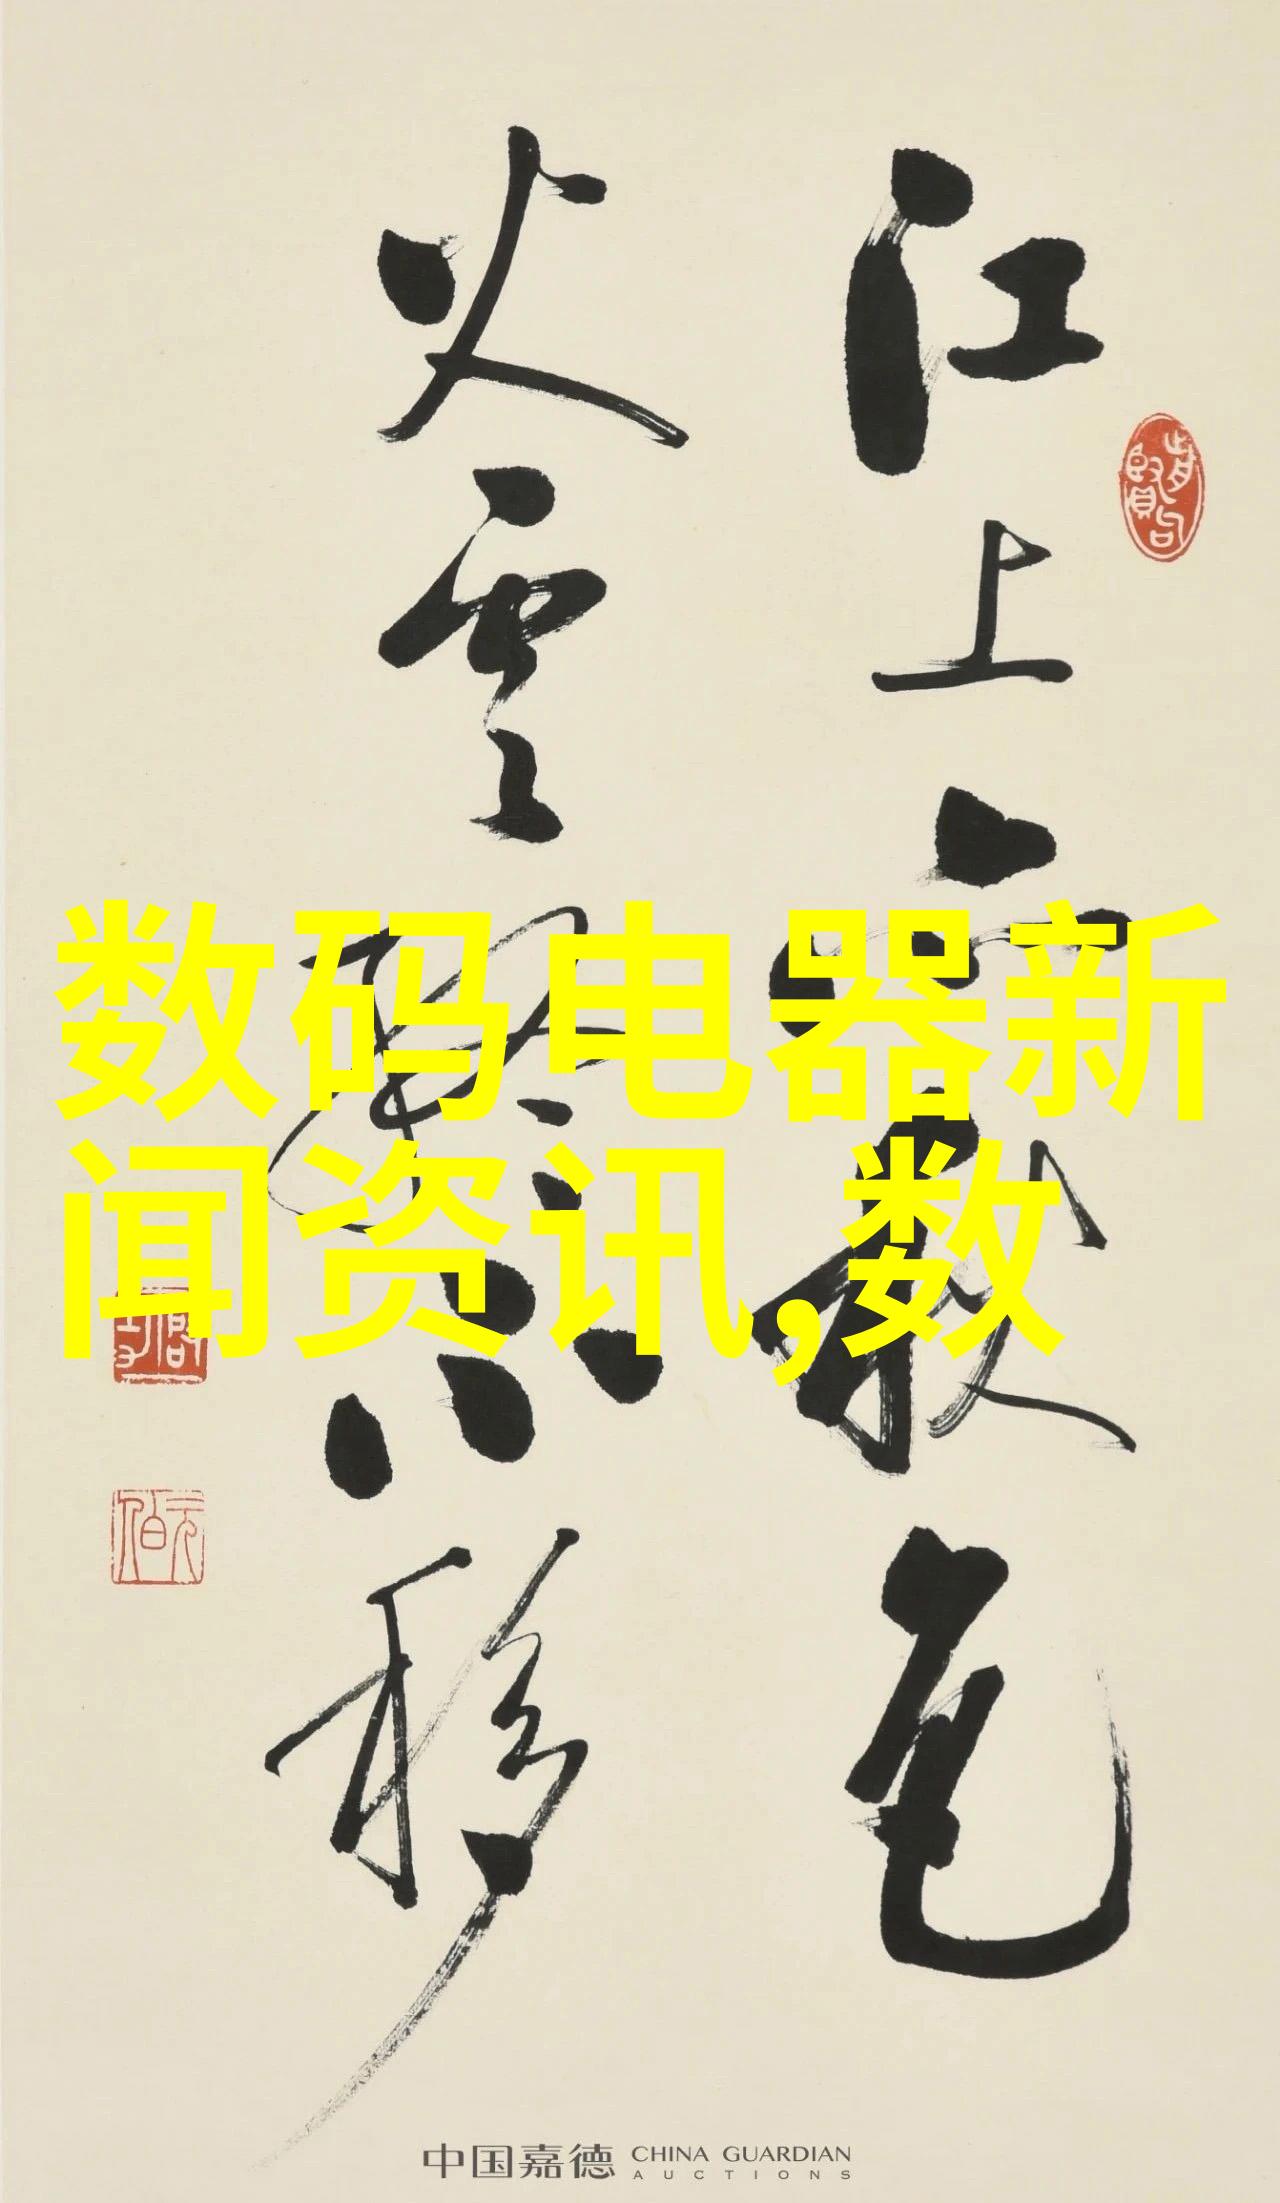 江上亦秋色
火雲終不移
数码电器新
闻资讯,数
中国嘉德 CHINA GUARDIAN
AUCTIONS